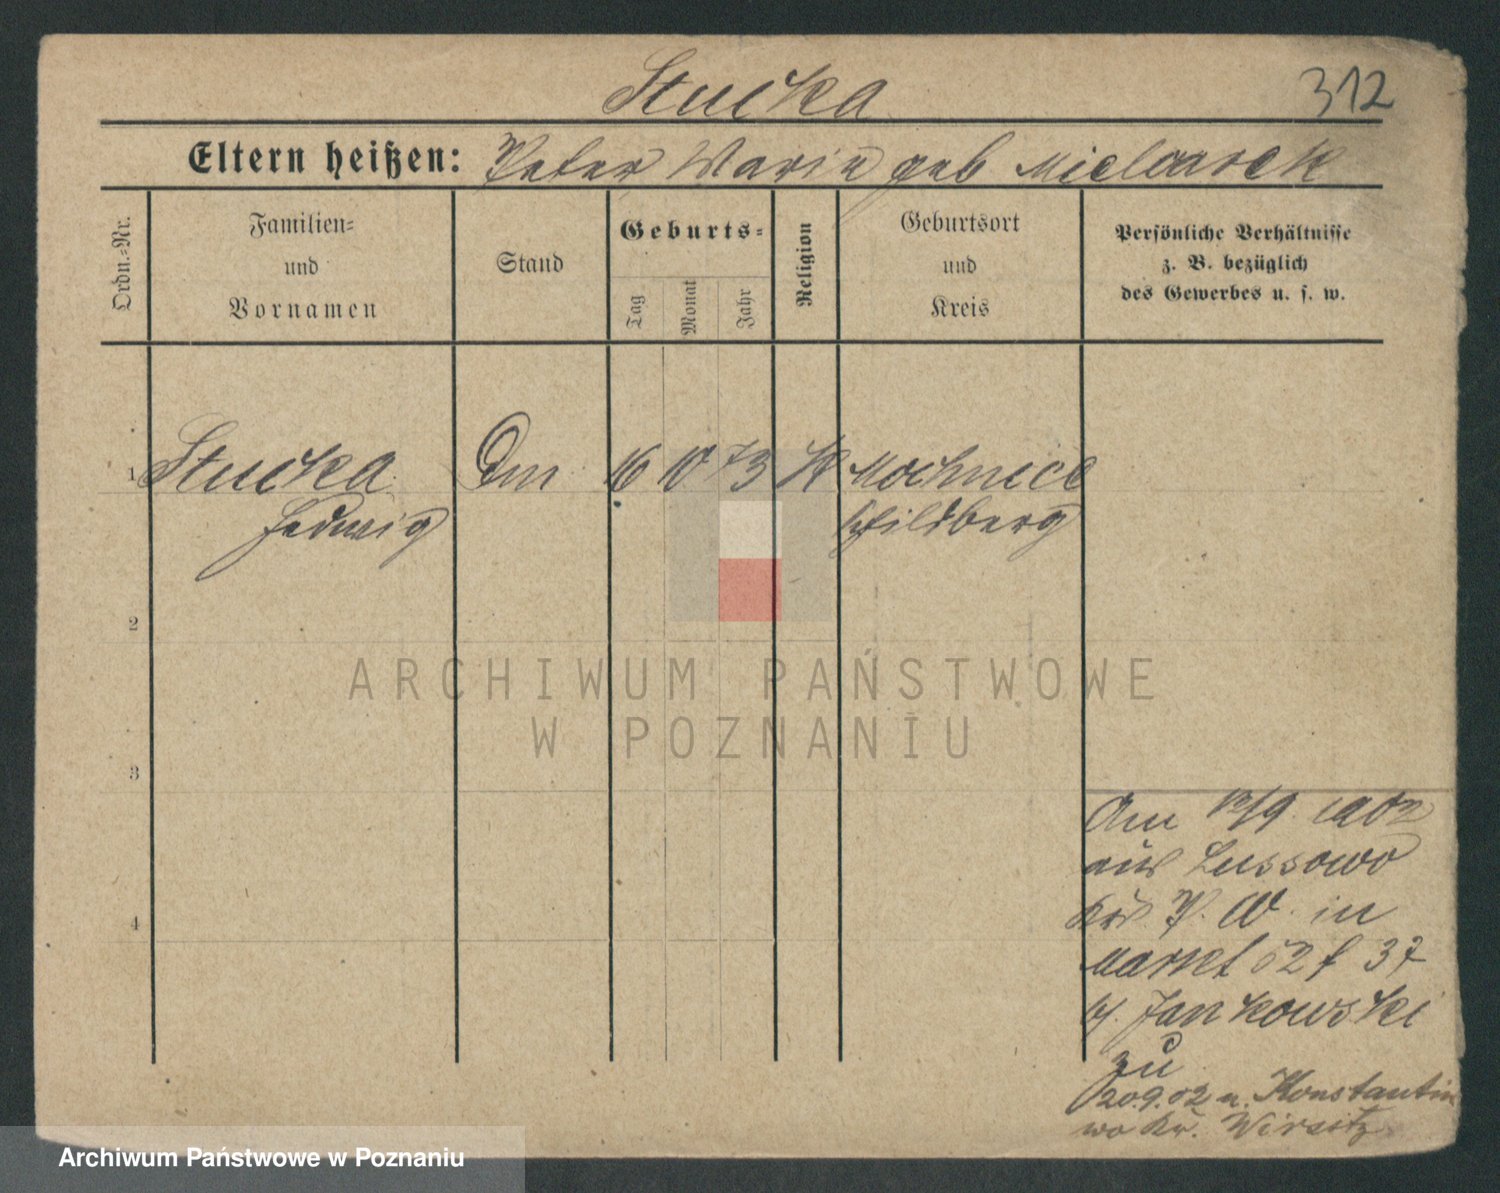 Stucka
312
Eltern heißen: Peter Marie geb Mielcarek
Ordn.-Nr.
Familien-
und
Vornamen
Stand
Geburts-
Tag
Monat
Jahr
Religion
Geburtsort
und
Kreis
Persönliche Verhältnisse
z. B. bezüglich
des Gewerbes u. s. w.
1 Stucka 16 10 73 K
Hedwig Schildberg
2
3
4
Am 12/9. 1902
aus Lussowo
Krs. P. W. in
Markt 52 f 37
b/. Jankowski
zu
20.9.02 n. Konstantin
wo Kr. Wirsitz
ARCHIWUM PAŃSTWOWE
W POZNANIU
Archiwum Państwowe w Poznaniu